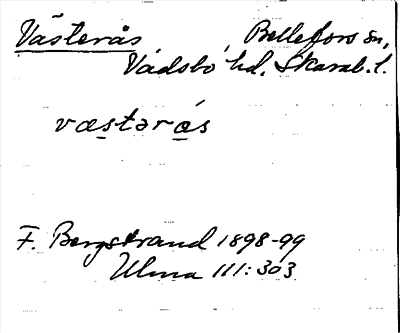 Västerås, Bellefors sn,
Vadsbo hd, Skarab. l.
væstərås
F. Bergstrand 1898-99
Ulma 111:303